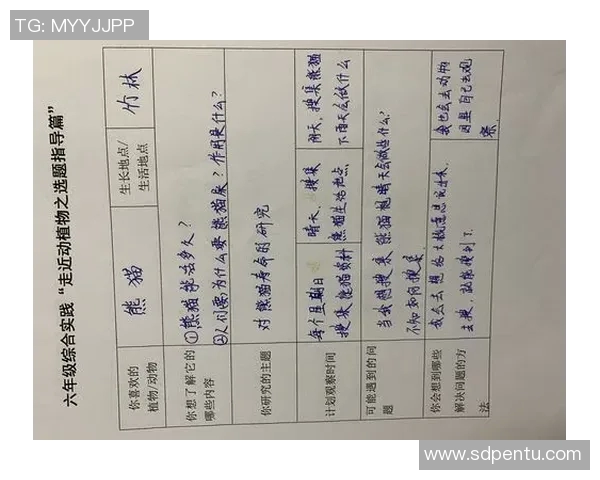 TG: MYYJJPP
六年级综合实践“走近动植物之选题指导篇”
你喜欢的
植物/动物
熊猫
生长地点/
生活地点
竹林
你想了解它的
哪些内容
①熊猫能活多久?
②人们要为什么要熊猫来?作用是什么?
你研究的主题
对熊猫寿命的研究
计划观察时间
每个星期日
搜集熊猫资料
晴天,搜集
熊猫生活地点
阴天,搜集熊猫
下雨天会做什么
可能遇到的问
题
当我想搜集熊猫晴天会做些什么,
不知如何搜集
你会想到哪些
解决问题的方
法
我会去想
去搜,就能搜到了.
我也会去动物
园里自己去观
察.
www.sdpentu.com